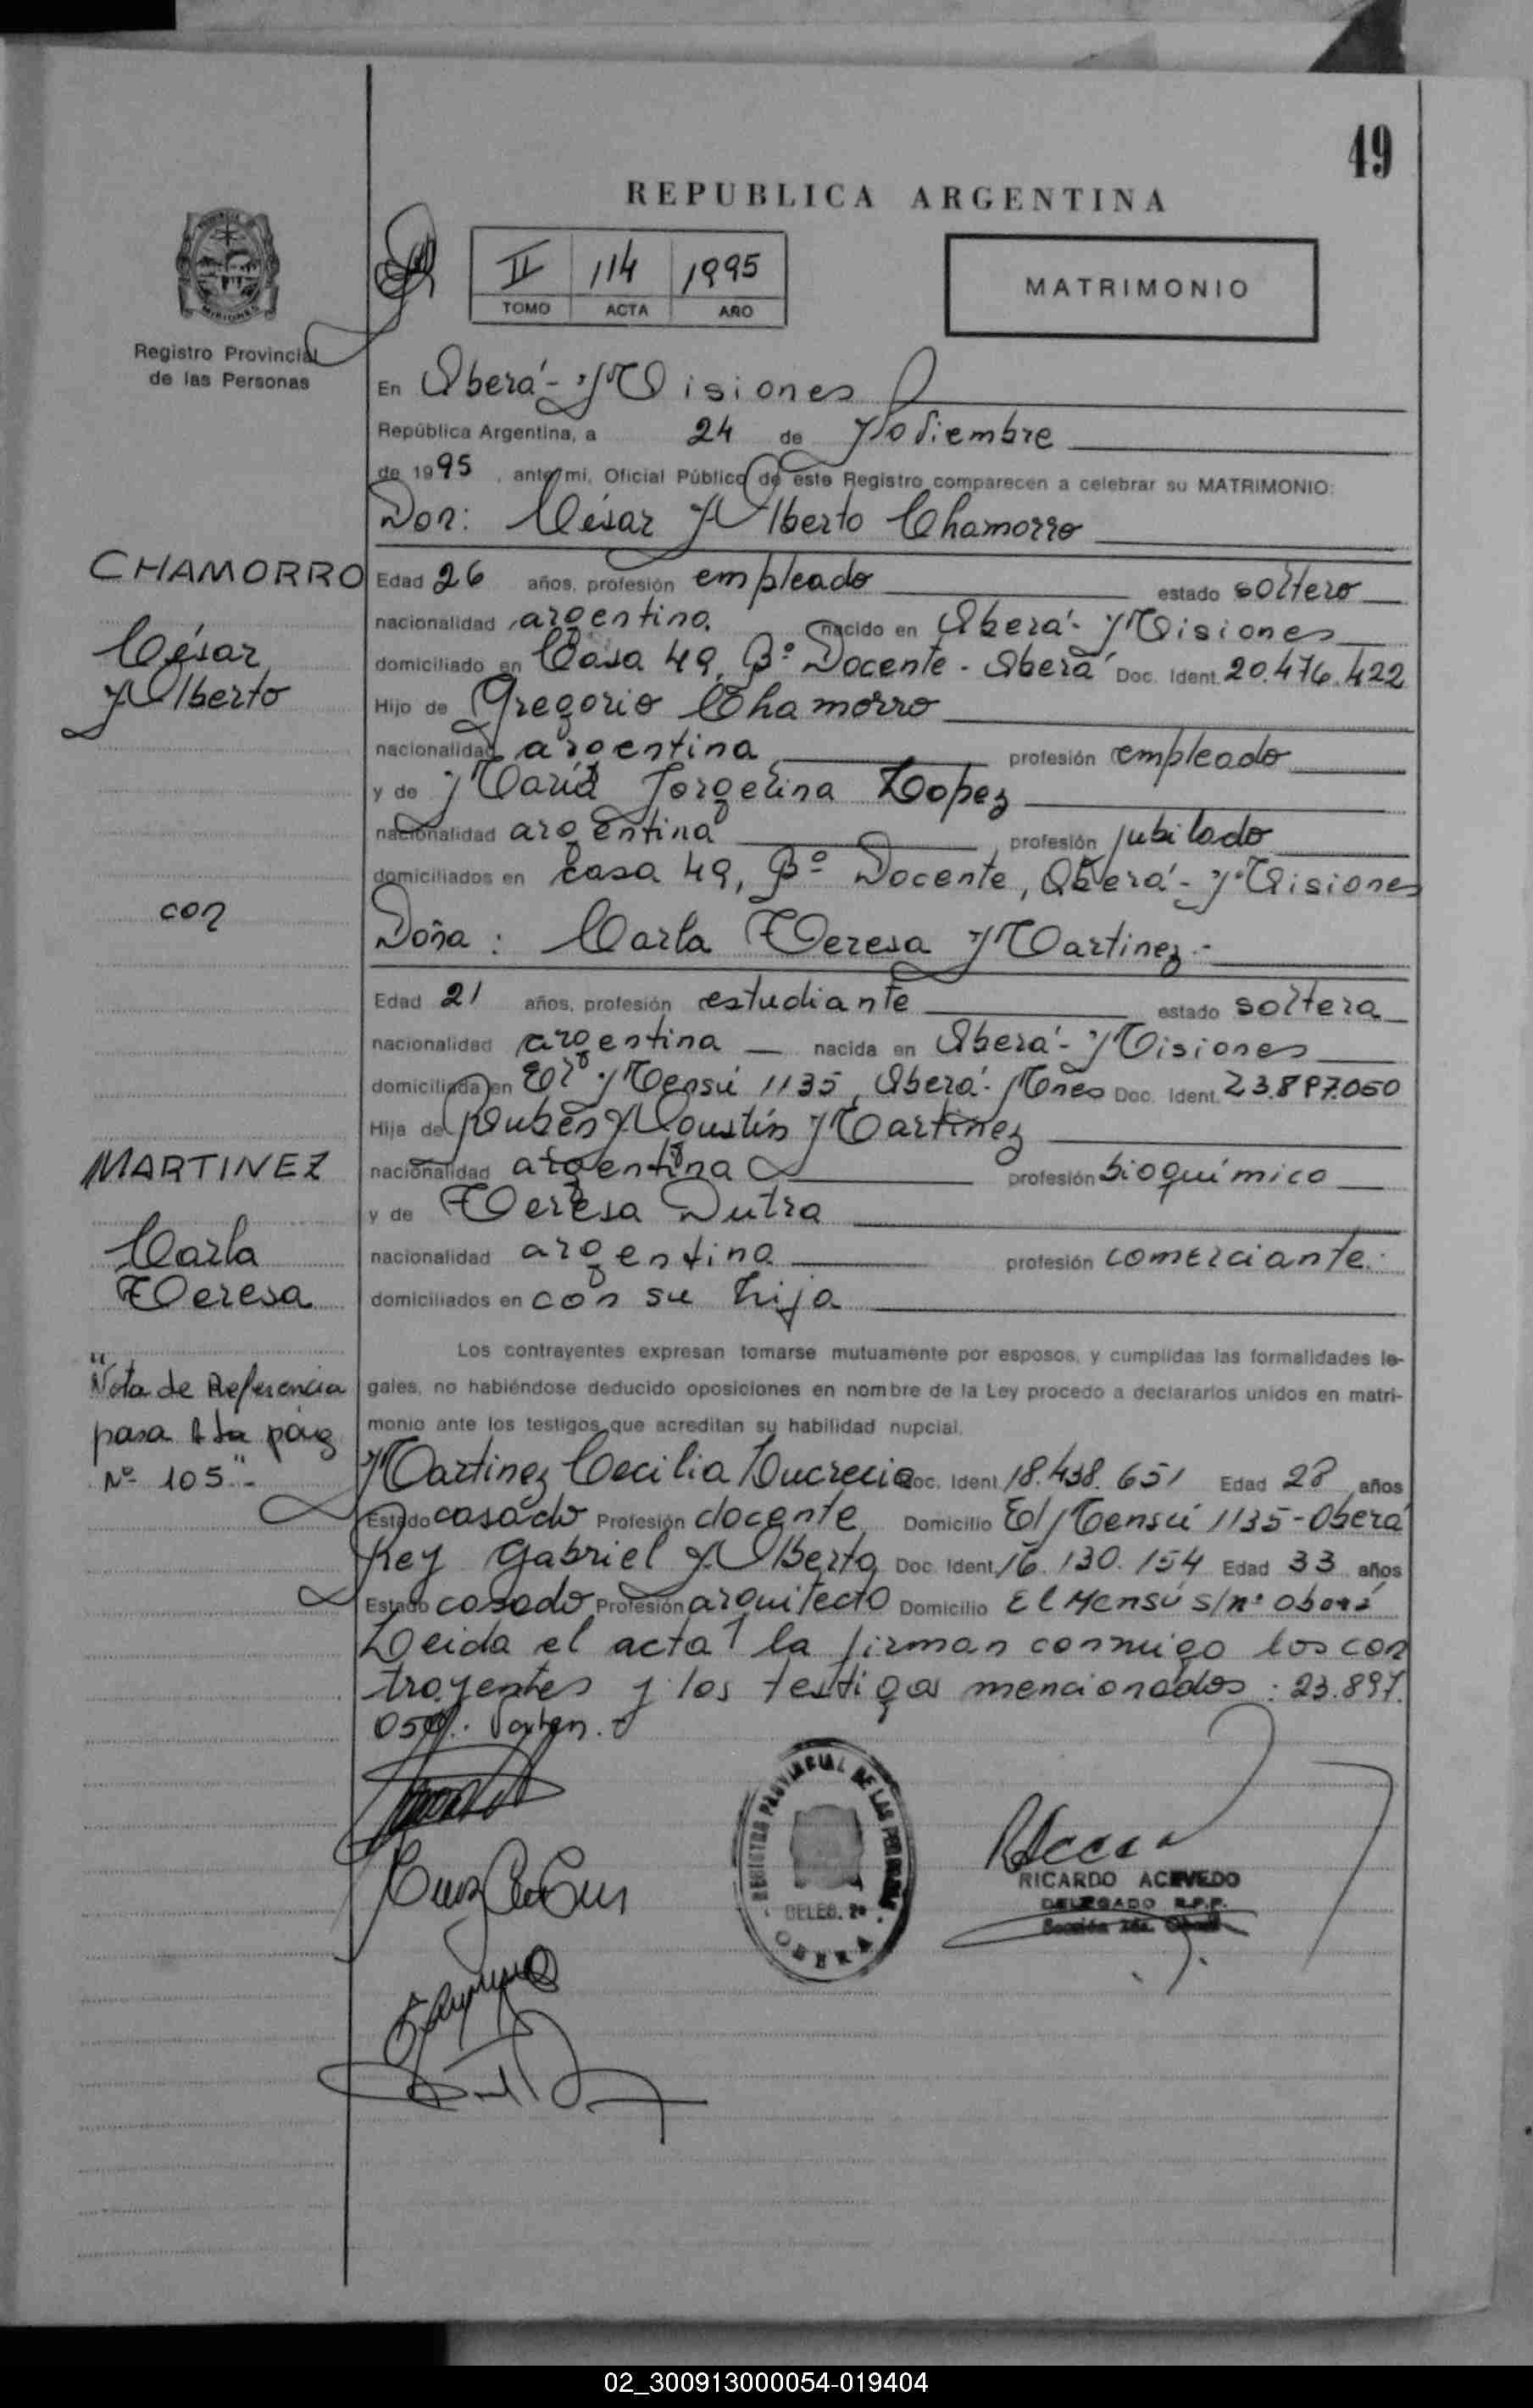 49
REPUBLICA ARGENTINA
II 114 1995
TOMO ACTA AÑO
MATRIMONIO
MISIONES
Registro Provincial
de las Personas
En Oberá - Misiones
República Argentina, a 24 de Noviembre
de 1995, ante mi, Oficial Público de este Registro comparecen a celebrar su MATRIMONIO:
Don: César Alberto Chamorro
CHAMORRO
César
Alberto
Edad 26 años, profesión empleado estado soltero
nacionalidad argentina nacido en Oberá - Misiones
domiciliado en Casa 49, Bº Docente - Oberá Doc. Ident. 20.476.422
Hijo de Gregorio Chamorro
nacionalidad argentina profesión empleado
y de María Jorgelina Lopez
nacionalidad argentina profesión jubilado
domiciliados en Casa 49, Bº Docente, Oberá - Misiones
con
Doña: Carla Teresa Martinez.-
Edad 21 años, profesión estudiante estado soltera
nacionalidad argentina nacida en Oberá - Misiones
domiciliada en El Mensú 1135, Oberá - Mnes Doc. Ident. 23.897.050
Hija de Rubén Agustín Martinez
MARTINEZ
Carla
Teresa
nacionalidad argentina profesión bioquímico
y de Teresa Dutra
nacionalidad argentina profesión comerciante.
domiciliados en con su hija
Los contrayentes expresan tomarse mutuamente por esposos, y cumplidas las formalidades le-
gales, no habiéndose deducido oposiciones en nombre de la Ley procedo a declararlos unidos en matri-
monio ante los testigos que acreditan su habilidad nupcial.
"Nota de Referencia
pasa a la pág
Nº 105".-
Martinez Cecilia Lucrecia Doc. Ident 18.438.651 Edad 28 años
Estado casado Profesión docente Domicilio El Mensú 1135 - Oberá
Rey Gabriel Alberto Doc. Ident. 16.130.154 Edad 33 años
Estado casado Profesión arquitecto Domicilio El Mensú s/nº Oberá
Leida el acta la firman conmigo los con
trayentes y los testigos mencionados: 23.897.
050.
REGISTRO PROVINCIAL DE LAS PERSONAS
DELEG. 2ª
OBERA
RICARDO ACEVEDO
DELEGADO R.P.P.
02_300913000054-019404